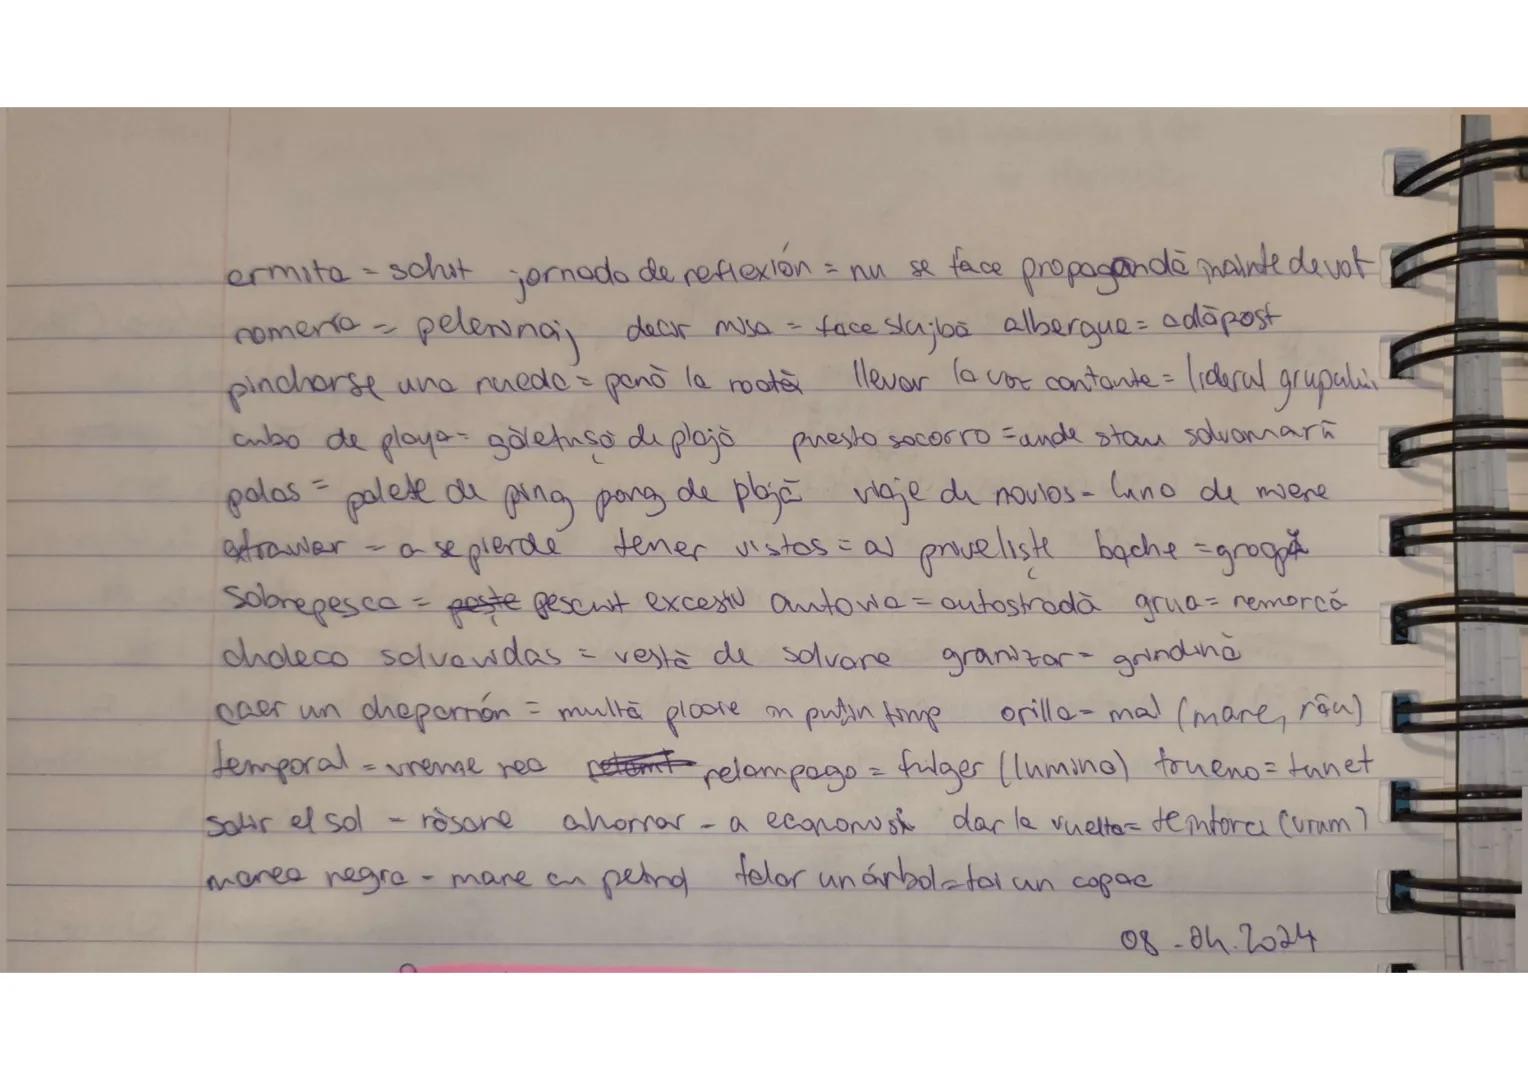 ermita = schit jornada de reflexión = nu se face propagandă înainte de vot
romería = pelerinaj decir misa = face slujbă albergue = adăpost
pincharse una rueda = pană la roată llevar la voz cantante = liderul grupului
cubo de playa = găletușă de plajă puesto socorro = unde stau salvamarii
palas = palete de ping pong de plajă viaje de novios - luna de miere
extraviar - a se pierde tener vistas = ai priveliște bache = groapă
sobrepesca = pește pescuit excesiv autovía = autostradă grua = remorcă
chaleco salvavidas = vestă de salvare granizar = grindină
caer un chaparrón = multă ploaie în puțin timp orilla = mal (mare, râu)
temporal = vreme rea relampago = fulger (lumina) trueno = tunet
salir el sol - răsare ahorrar - a economisi dar la vuelta = te întorci (virum)
marea negra - mare cu petrol talar un árbol = tai un copac
08.04.2024